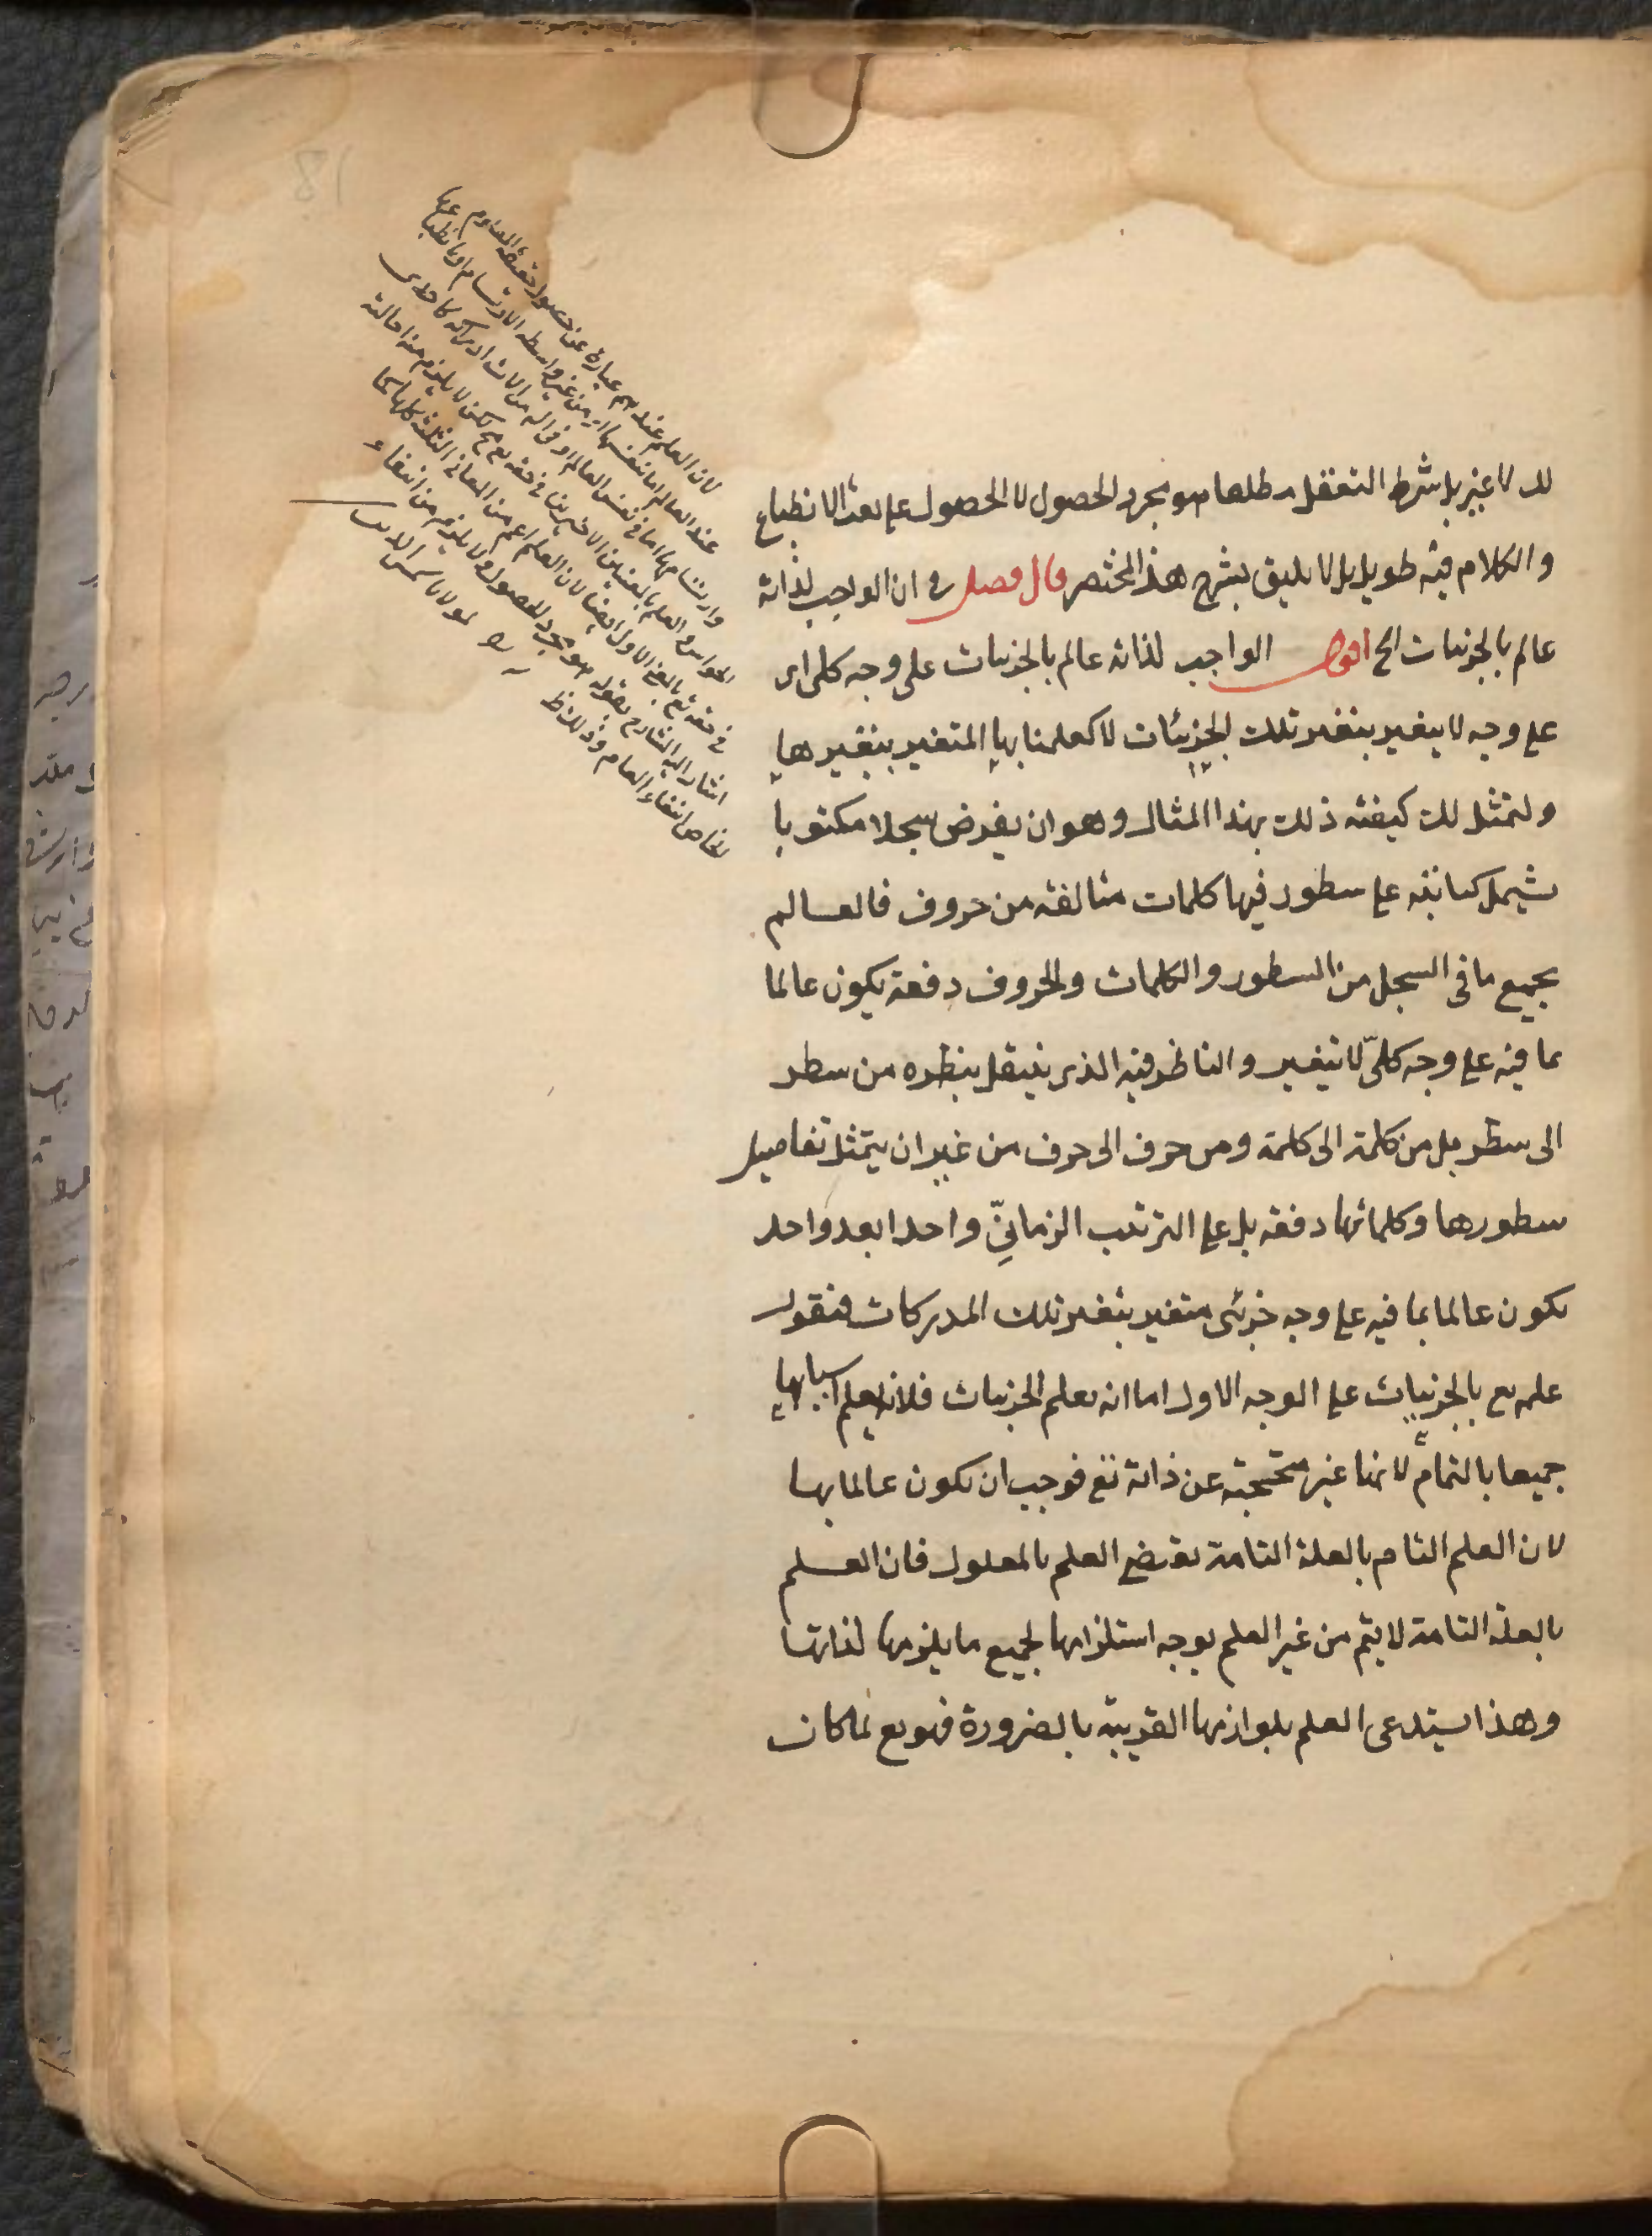 لا غير بل شرط التعقل مطلقا هو مجرد الحصول لا الحصول على نعت الانطباع
والكلام فيه طويل بل لا يليق بشرح هذا المختصر قال فصل في ان الواجب لذاته
عالم بالجزئيات الخ اقول الواجب لذاته عالم بالجزئيات على وجه كلى اى
على وجه لا يتغير بتغير تلك الجزئيات لا كعلمنا بها المتغير بتغيرها
ولنمثل لك كيفية ذلك بهذا المثال وهو ان يفرض سجلا مكتوبا
يشمل كتابته على سطور فيها كلمات متالفة من حروف فالعالم
بجميع ما فى السجل من السطور والكلمات والحروف دفعة يكون عالما
بما فيه على وجه كلىّ لا يتغير والناظر فيه الذى ينتقل بنظره من سطر
الى سطر بل من كلمة الى كلمة ومن حرف الى حرف من غير ان يتمثل تفاصيل
سطورها وكلماتها دفعة بل على الترتيب الزمانىّ واحدا بعد واحد
يكون عالما بما فيه على وجه جزئى متغير بتغير تلك المدركات فنقول
علمه تع بالجزئيات على الوجه الاول اما انه يعلم الجزئيات فلانه يعلم اسبابها
جميعا بالتمام لانها غير محتجبة عن ذاته تع فوجب ان يكون عالما بها
لان العلم التام بالعلة التامة يقتضى العلم بالمعلول فان العلم
بالعلة التامة لا يتم من غير العلم بوجه استلزامها لجميع ما يلزمها لذاتها
وهذا يستدعى العلم بلوازمها القريبة بالضرورة فهو تع لما كان
لان العلم عندهم عبارة عن حصول حقيقة المعلوم
عند العالم اما بنفسها اى من غير واسطة الارتسام
وارتسامها اما فى نفس العالم او فى الة من الات ادراكه كاحدى
الحواس والعلم بالمعنيين الاخيرين فى حقه تع لكن لا يلزم منه احالته
فى حقه تع بالمعنى الاول ايضا لان العلم اعم من المعانى الثلثة كلها كما
اشار اليه الشارح بقوله هو مجرد الحصول ولا يلزم من انتفاء
الخاص انتفاء العام وذلك ظ